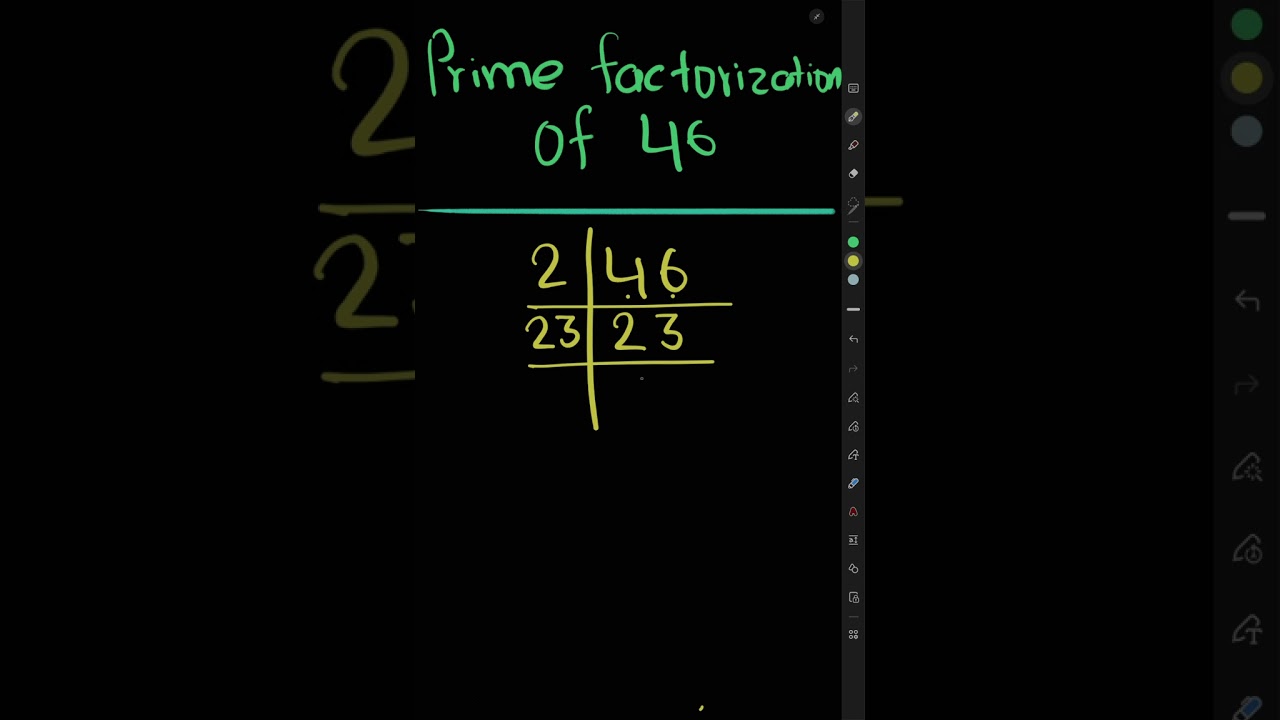 Prime factorization
of 46
2 | 46
23 | 23